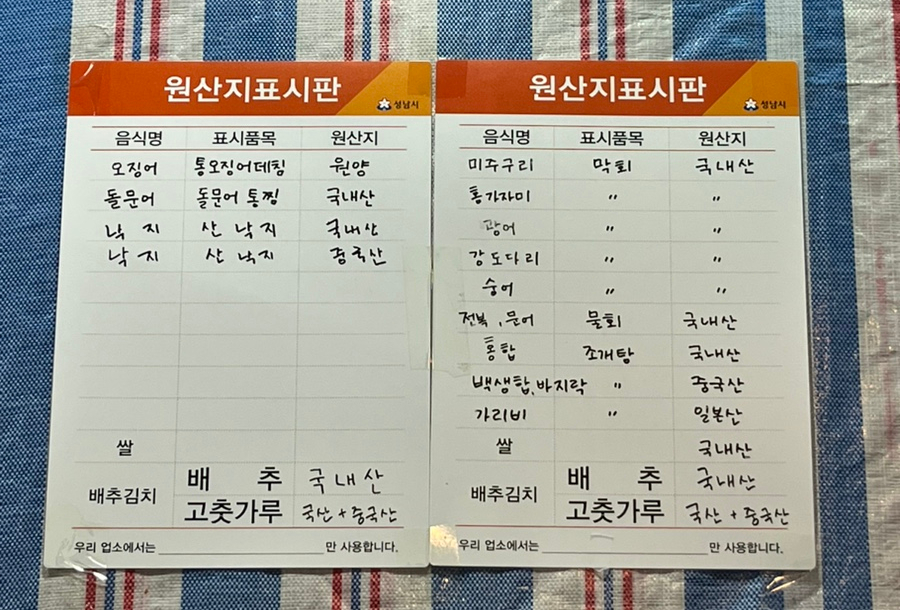 원산지표시판
성남시
음식명 표시품목 원산지
오징어 통오징어데침 원양
돌문어 돌문어 통찜 국내산
낙지 산 낙지 국내산
낙지 산 낙지 중국산
쌀
배추김치 배추 국내산
고춧가루 국산 + 중국산
우리 업소에서는 만 사용합니다.
원산지표시판
성남시
음식명 표시품목 원산지
미주구리 막회 국내산
홍가자미 〃 〃
광어 〃 〃
강도다리 〃 〃
숭어 〃 〃
전복, 문어 물회 국내산
홍합 조개탕 국내산
백생합, 바지락 〃 중국산
가리비 〃 일본산
쌀 국내산
배추김치 배추 국내산
고춧가루 국산 + 중국산
우리 업소에서는 만 사용합니다.